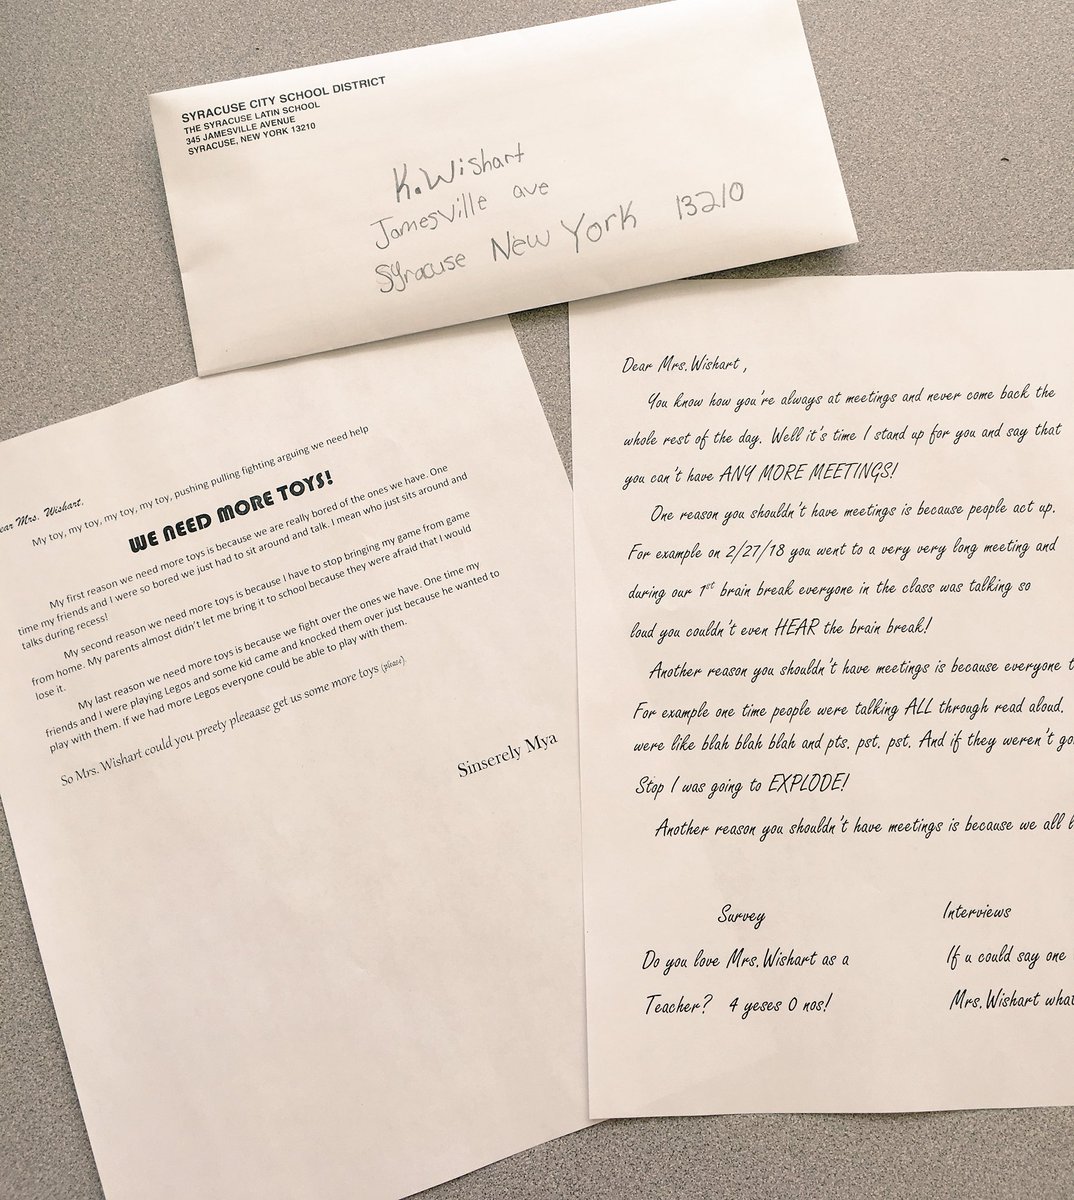 SYRACUSE CITY SCHOOL DISTRICT
THE SYRACUSE LATIN SCHOOL
345 JAMESVILLE AVENUE
SYRACUSE, NEW YORK 13210
K. Wishart
Jamesville ave
Syracuse New York 13210
ear Mrs. Wishart,
My toy, my toy, my toy, my toy, pushing pulling fighting arguing we need help
WE NEED MORE TOYS!
My first reason we need more toys is because we are really bored of the ones we have. One
time my friends and I were so bored we just had to sit around and talk. I mean who just sits around and
talks during recess!
My second reason we need more toys is because I have to stop bringing my game from game
from home. My parents almost didn't let me bring it to school because they were afraid that I would
lose it.
My last reason we need more toys is because we fight over the ones we have. One time my
friends and I were playing Legos and some kid came and knocked them over just because he wanted to
play with them. If we had more Legos everyone could be able to play with them.
So Mrs. Wishart could you preety pleeaase get us some more toys (please).
Sinserely Mya
Dear Mrs. Wishart ,
You know how you're always at meetings and never come back the
whole rest of the day. Well it's time I stand up for you and say that
you can't have ANY MORE MEETINGS!
One reason you shouldn't have meetings is because people act up.
For example on 2/27/18 you went to a very very long meeting and
during our 1st brain break everyone in the class was talking so
loud you couldn't even HEAR the brain break!
Another reason you shouldn't have meetings is because everyone t
For example one time people were talking ALL through read aloud.
were like blah blah blah and pts. pst. pst. And if they weren't go
Stop I was going to EXPLODE!
Another reason you shouldn't have meetings is because we all l
Survey
Do you love Mrs. Wishart as a
Teacher? 4 yeses 0 nos!
Interviews
If u could say one
Mrs. Wishart what